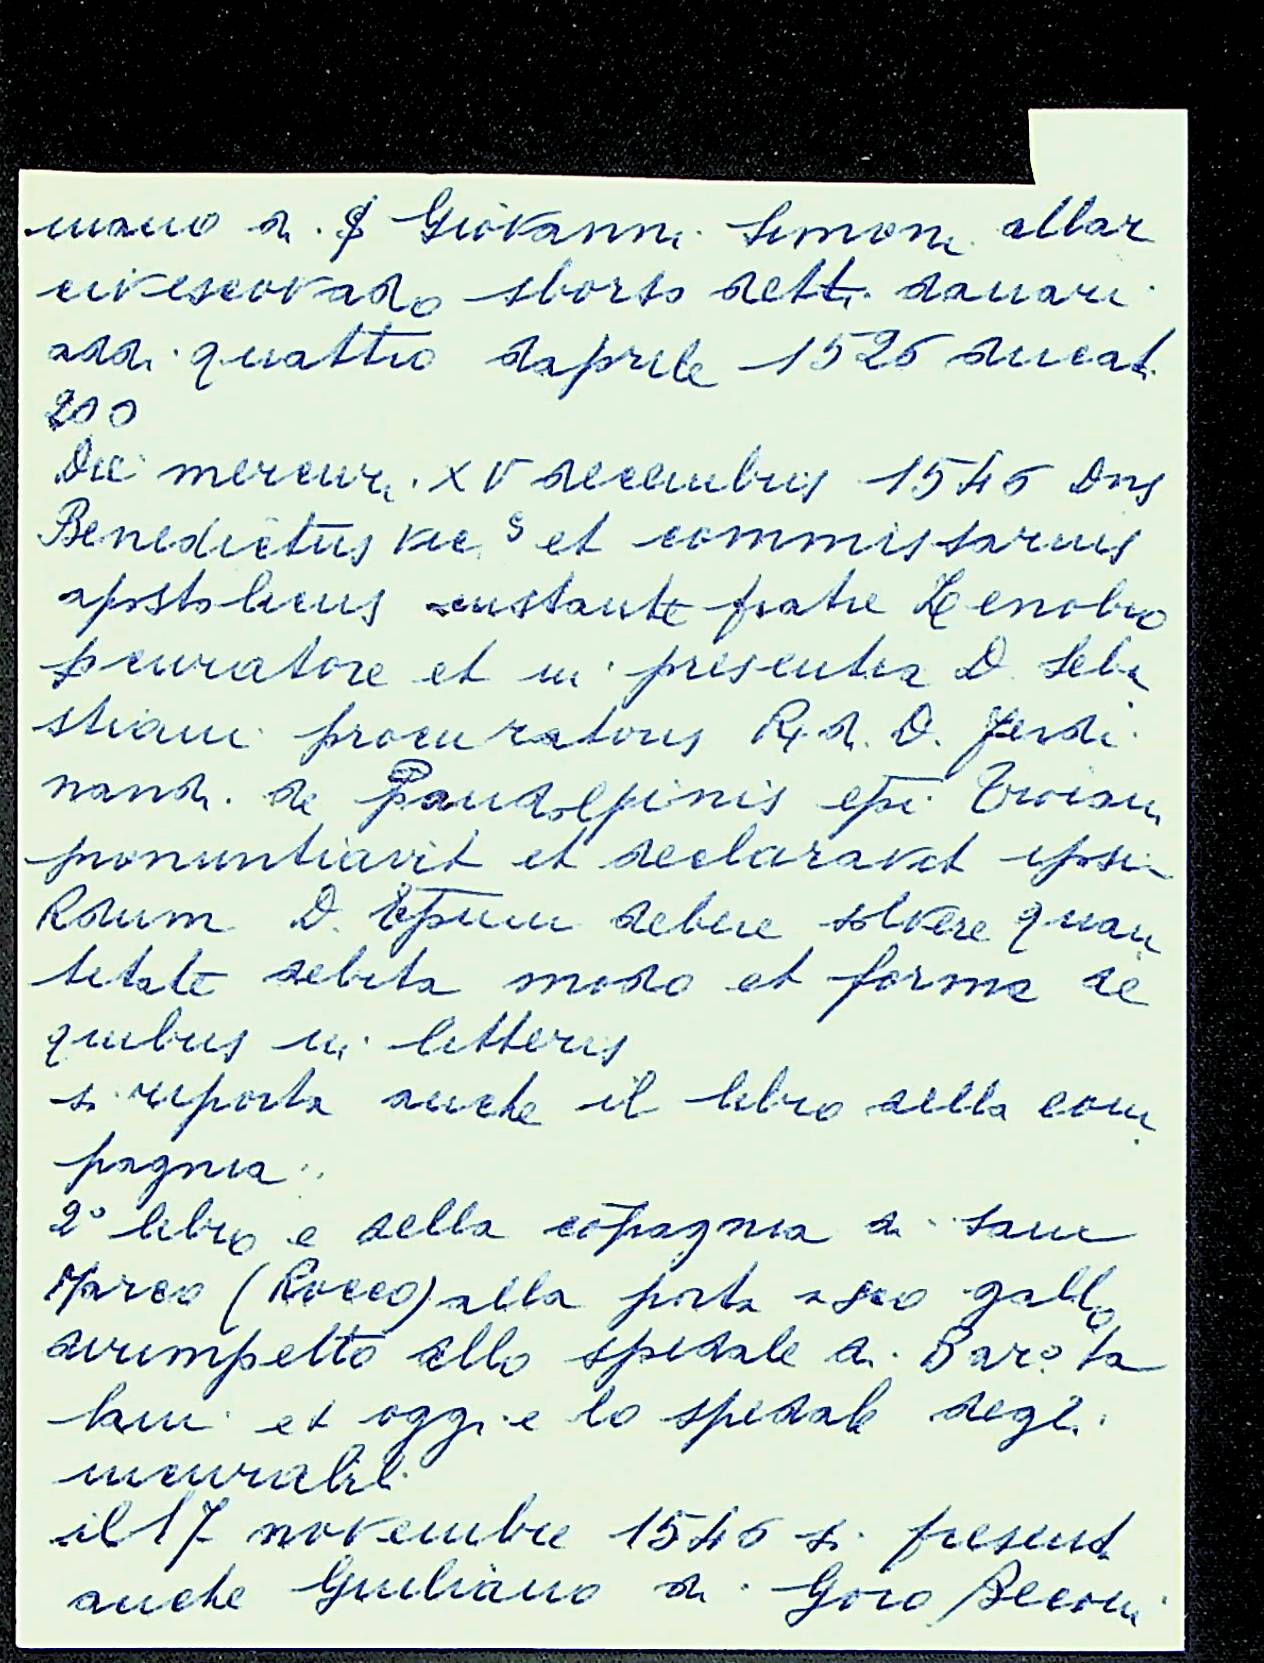 mano di S Giovanni Simoni allar
civescovado sborso detti danari
addi quattro daprile 1526 ducati
200
Die mercurii XV decembris 1546 Dns
Benedictus vic.s et commissarius
apostolicus instante fratre Zenobio
pcuratore et in presentia D. Seba
stiani procuratoris R.di D. Ferdi
nandi de Pandolfinis epi Troiani
pronuntiavit et declaravit ipsu
Rdum D. Epum debere solvere quan
titate debita modo et forma de
quibus in litteris
si riporta anche il libro della com
pagnia.
2° libro e della copagnia di san
Marco (Rocco) alla porta a sco gallo
dirimpetto allo spedale di Bar°
lani et oggi e lo spedale degli
incurabili
il 17 novembre 1546 si present
anche Giuliano di Goro